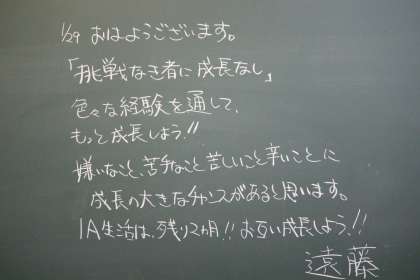 1/29 おはようございます。
「挑戦なき者に成長なし」
色々な経験を通して、
もっと成長しよう!!
嫌いなこと、苦手なこと苦しいこと辛いことに
成長の大きなチャンスがあると思います。
1A生活は、残り2カ月!!お互い成長しよう!!
遠藤